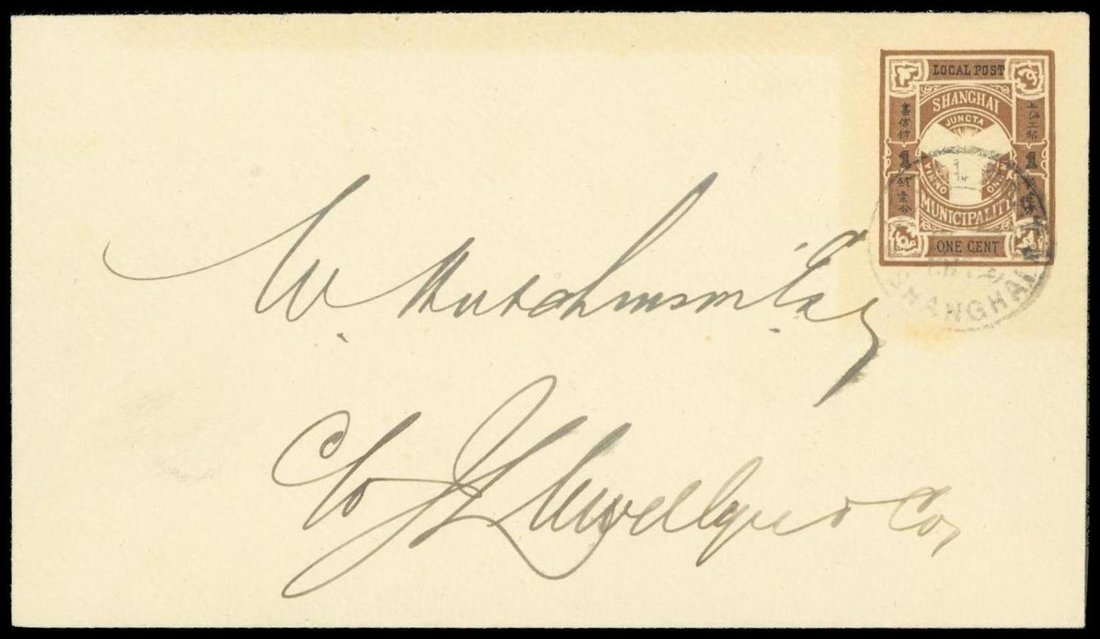 LOCAL POST
SHANGHAI
JUNCTA IN UNO
1 1
MUNICIPALITY
ONE CENT
SHANGHAI
W. Hutchinson Esq
C/o J Llewellyn & Co,